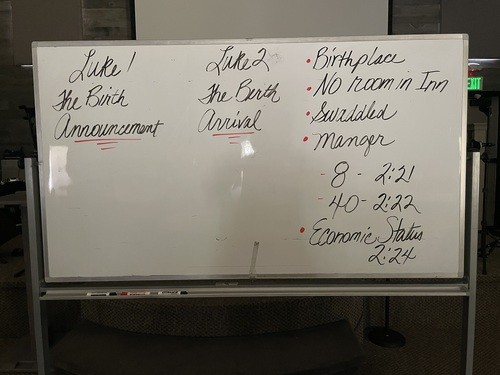 Luke 1
The Birth
Announcement
Luke 2
The Berth
Arrival
• Birthplace
• NO room in Inn
• Swaddled
• Manger
- 8 - 2:21
- 40 - 2:22
• Economic Status
2:24
EXIT